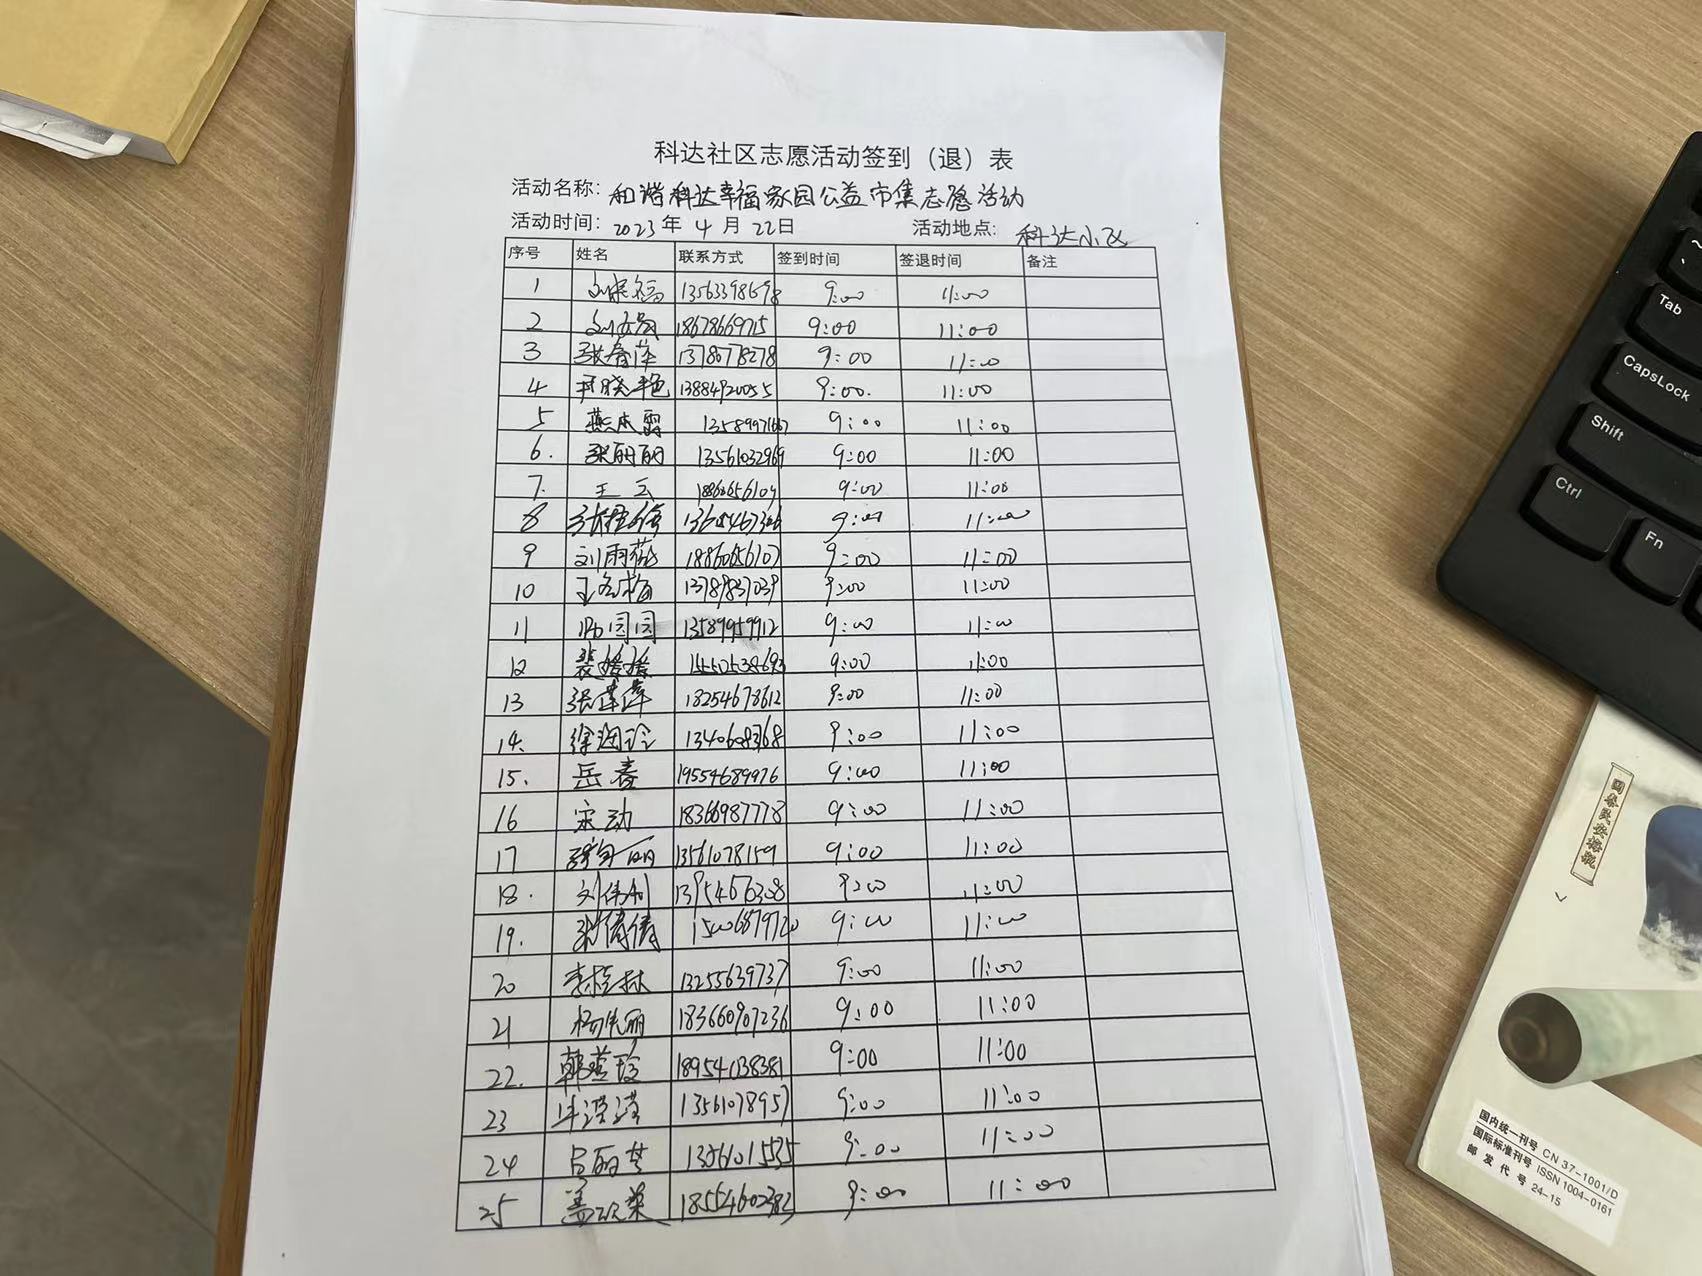 科达社区志愿活动签到（退）表
活动名称：和谐科达幸福家园公益市集志愿活动
活动时间：2023年 4 月 22日 活动地点：科达小区
序号 姓名 联系方式 签到时间 签退时间 备注
1 9:00 11:00
2 18678669715 9:00 11:00
3 张春萍 13780778278 9:00 11:00
4 13884920055 9:00. 11:00
5 燕杰雷 9:00 11:00
6. 张丽丽 13561032969 9:00 11:00
7. 王云 9:00 11:00
8 9:00 11:00
9 刘雨薇 18860656107 9:00 11:00
10 王冬梅 13789837039 9:00 11:00
11 园园 13589959912 9:00 11:00
12 裴媛媛 9:00 11:00
13 张萍萍 18254678612 9:00 11:00
14. 徐润玲 13406083768 9:00 11:00
15. 岳春 19554689976 9:00 11:00
16 宋动 18366987778 9:00 11:00
17 13561078159 9:00 11:00
18. 刘伟利 9:00 11:00
19. 张倩倩 15006879720 9:00 11:00
20 李桂林 13255639737 9:00 11:00
21 杨先丽 183660907236 9:00 11:00
22. 韩莹玲 18954038381 9:00 11:00
23 13561078957 9:00 11:00
24 吕丽芳 13561015535 9:00 11:00
25 18554602382 9:00 11:00
Tab
CapsLock
Shift
Ctrl
Fn
国泰民安梅瓶
国内统一刊号 CN 37-1001/D
国际标准刊号 ISSN 1004-0161
邮发代号 24-15